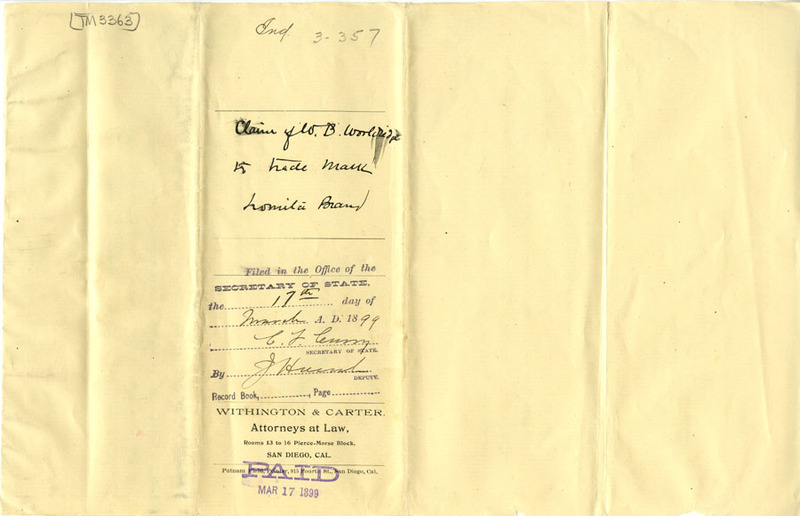 [TM3363]
Ind 3-357
Claim of W. B. Wooldridge
to trade mark
Lomita Brand
Filed in the Office of the
SECRETARY OF STATE,
the 17th day of
March A. D. 1899
C. F. Curry
SECRETARY OF STATE.
By J.
DEPUTY.
Record Book, , Page
WITHINGTON & CARTER,
Attorneys at Law,
Rooms 13 to 16 Pierce-Morse Block,
SAN DIEGO, CAL.
Putnam Printer, 915 Fourth St., San Diego, Cal.
PAID
MAR 17 1899